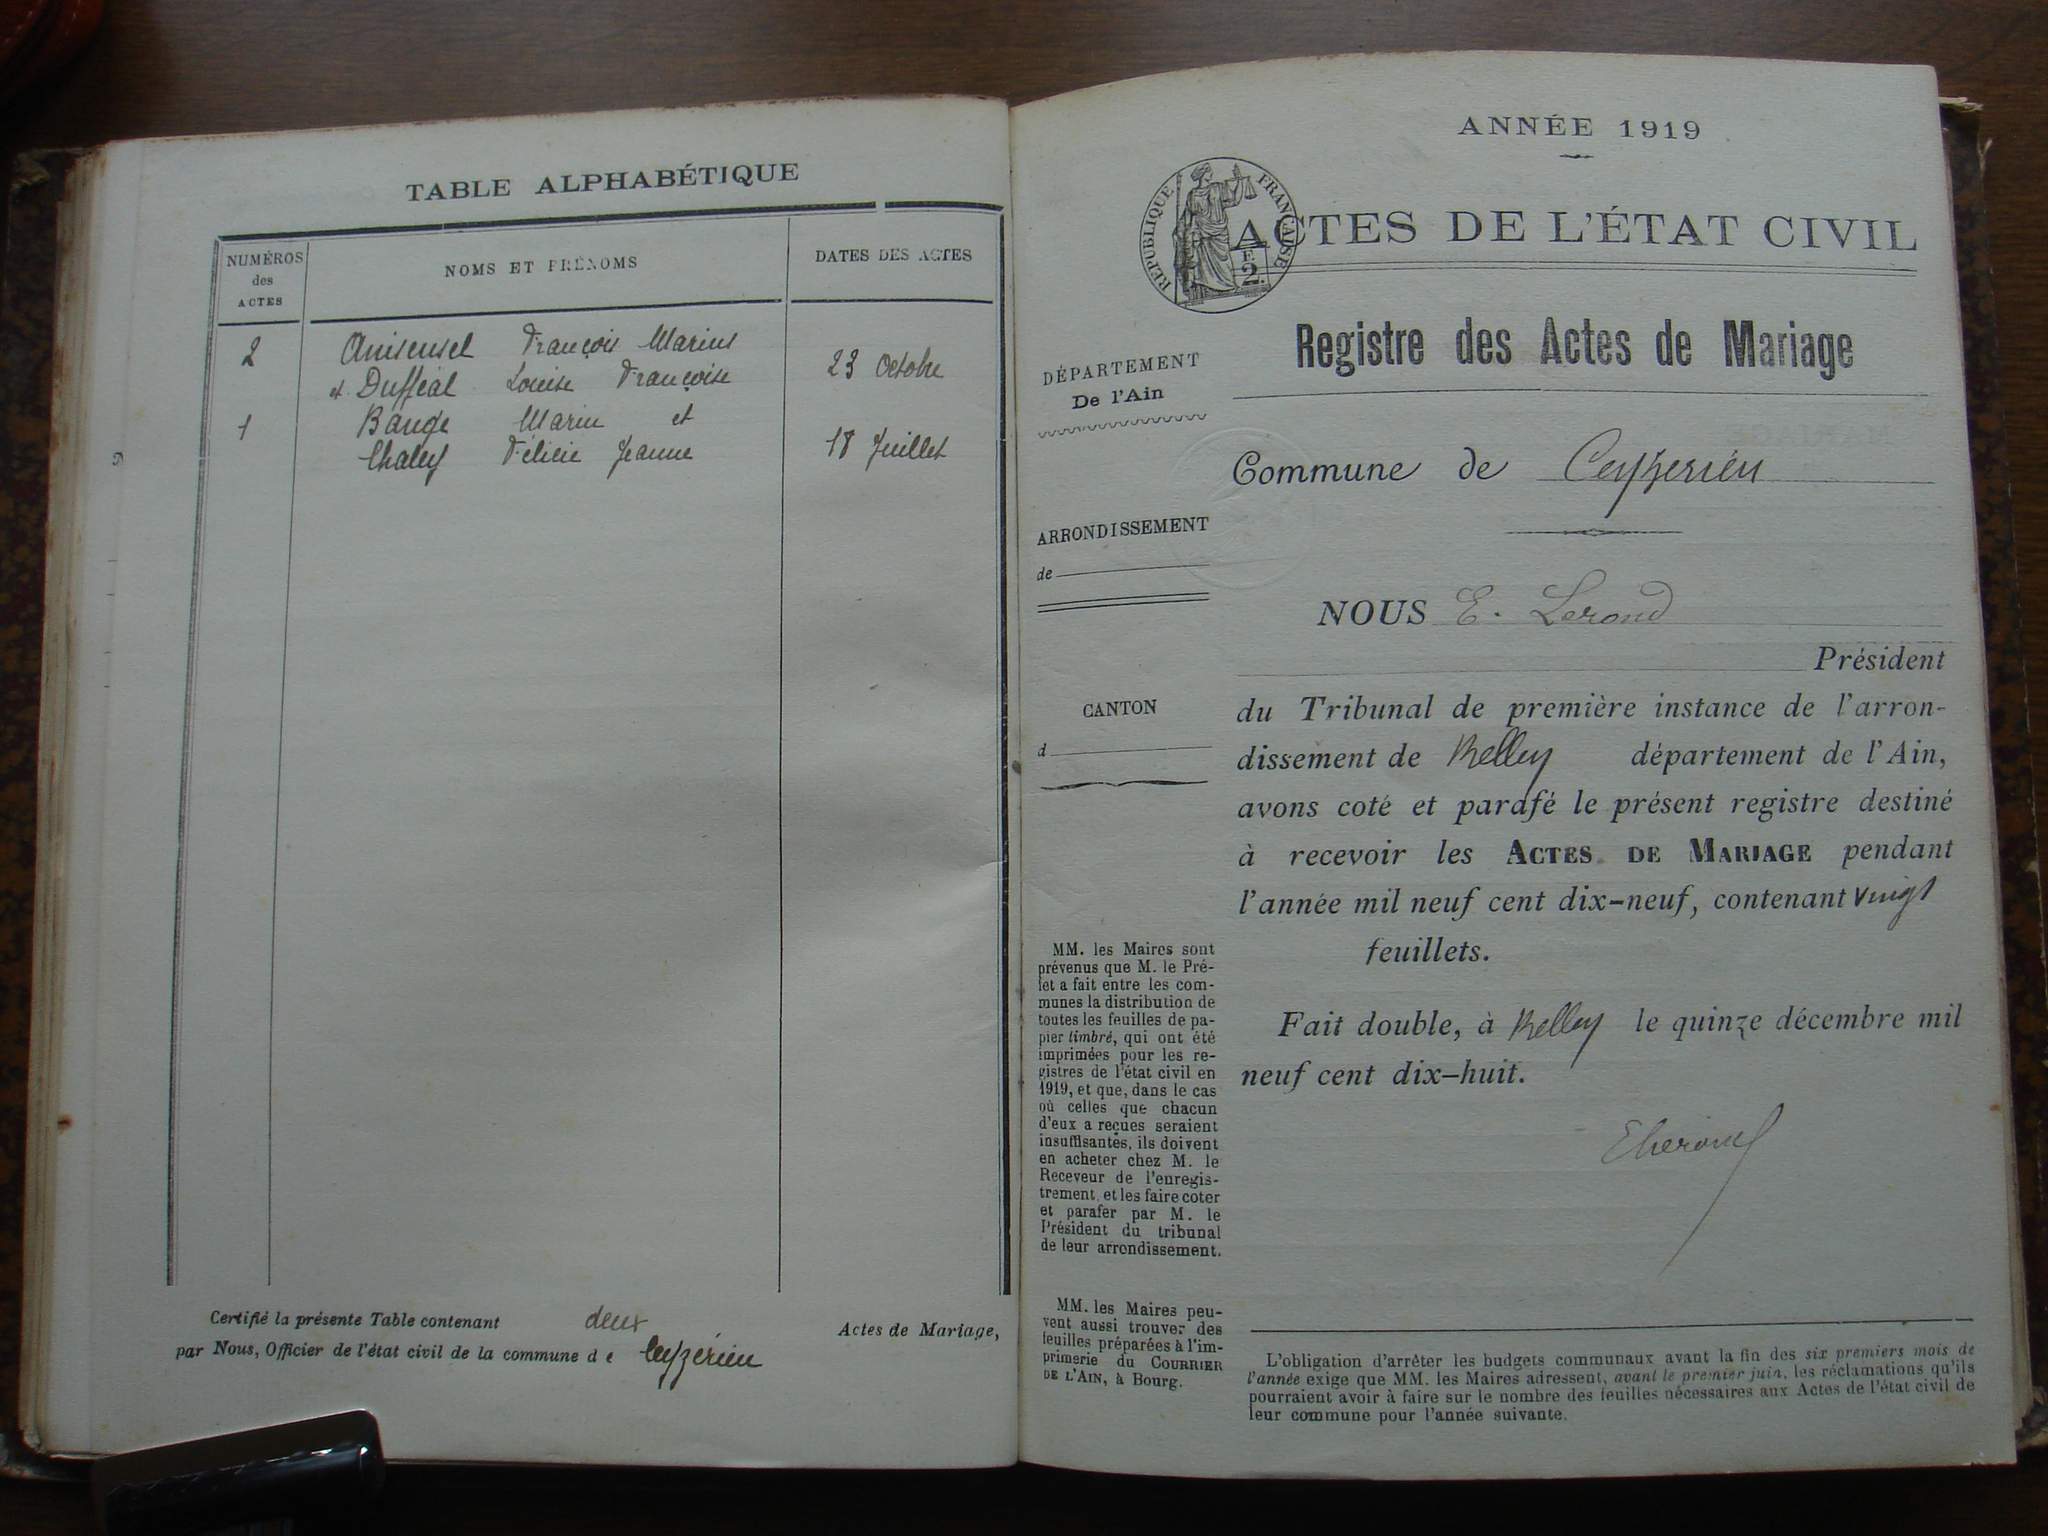 TABLE ALPHABÉTIQUE
NUMÉROS
des
ACTES
NOMS ET PRÉNOMS
DATES DES ACTES
2
François Marius
etUfféal Louise Françoise
23 Octobre
1
Bauge Marin et
Chaley Félicie Jeanne
18 Juillet
Certifié la présente Table contenant deux Actes de Mariage,
par Nous, Officier de l'état civil de la commune de Ceyzérieu
ANNÉE 1919
RÉPUBLIQUE FRANÇAISE
2
ACTES DE L'ÉTAT CIVIL
Registre des Actes de Mariage
DÉPARTEMENT
De l'Ain
Commune de Ceyzerieu
ARRONDISSEMENT
de
NOUS E. Lerond
Président
CANTON
d
du Tribunal de première instance de l'arron-
dissement de Belley département de l'Ain,
avons coté et parafé le présent registre destiné
à recevoir les ACTES DE MARIAGE pendant
l'année mil neuf cent dix-neuf, contenant vingt
feuillets.
Fait double, à Belley le quinze décembre mil
neuf cent dix-huit.
ELerond
MM. les Maires sont
prévenus que M. le Pré-
fet a fait entre les com-
munes la distribution de
toutes les feuilles de pa-
pier timbré, qui ont été
imprimées pour les re-
gistres de l'état civil en
1919, et que, dans le cas
où celles que chacun
d'eux a reçues seraient
insuffisantes, ils doivent
en acheter chez M. le
Receveur de l'enregis-
trement, et les faire coter
et parafer par M. le
Président du tribunal
de leur arrondissement.
MM. les Maires peu-
vent aussi trouver des
feuilles préparées à l'im-
primerie du COURRIER
DE L'AIN, à Bourg.
L'obligation d'arrêter les budgets communaux avant la fin des six premiers mois de
l'année exige que MM. les Maires adressent, avant le premier juin, les réclamations qu'ils
pourraient avoir à faire sur le nombre des feuilles nécessaires aux Actes de l'état civil de
leur commune pour l'année suivante.